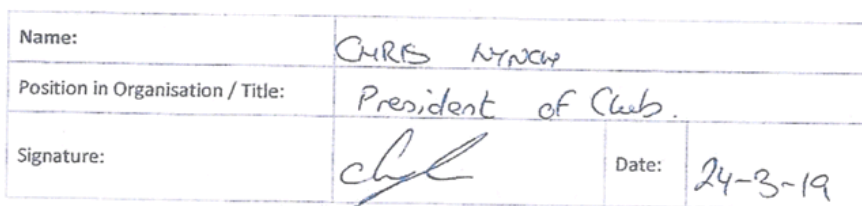 Name: CHRIS LYNCH
Position in Organisation / Title: President of Club.
Signature: Date: 24-3-19